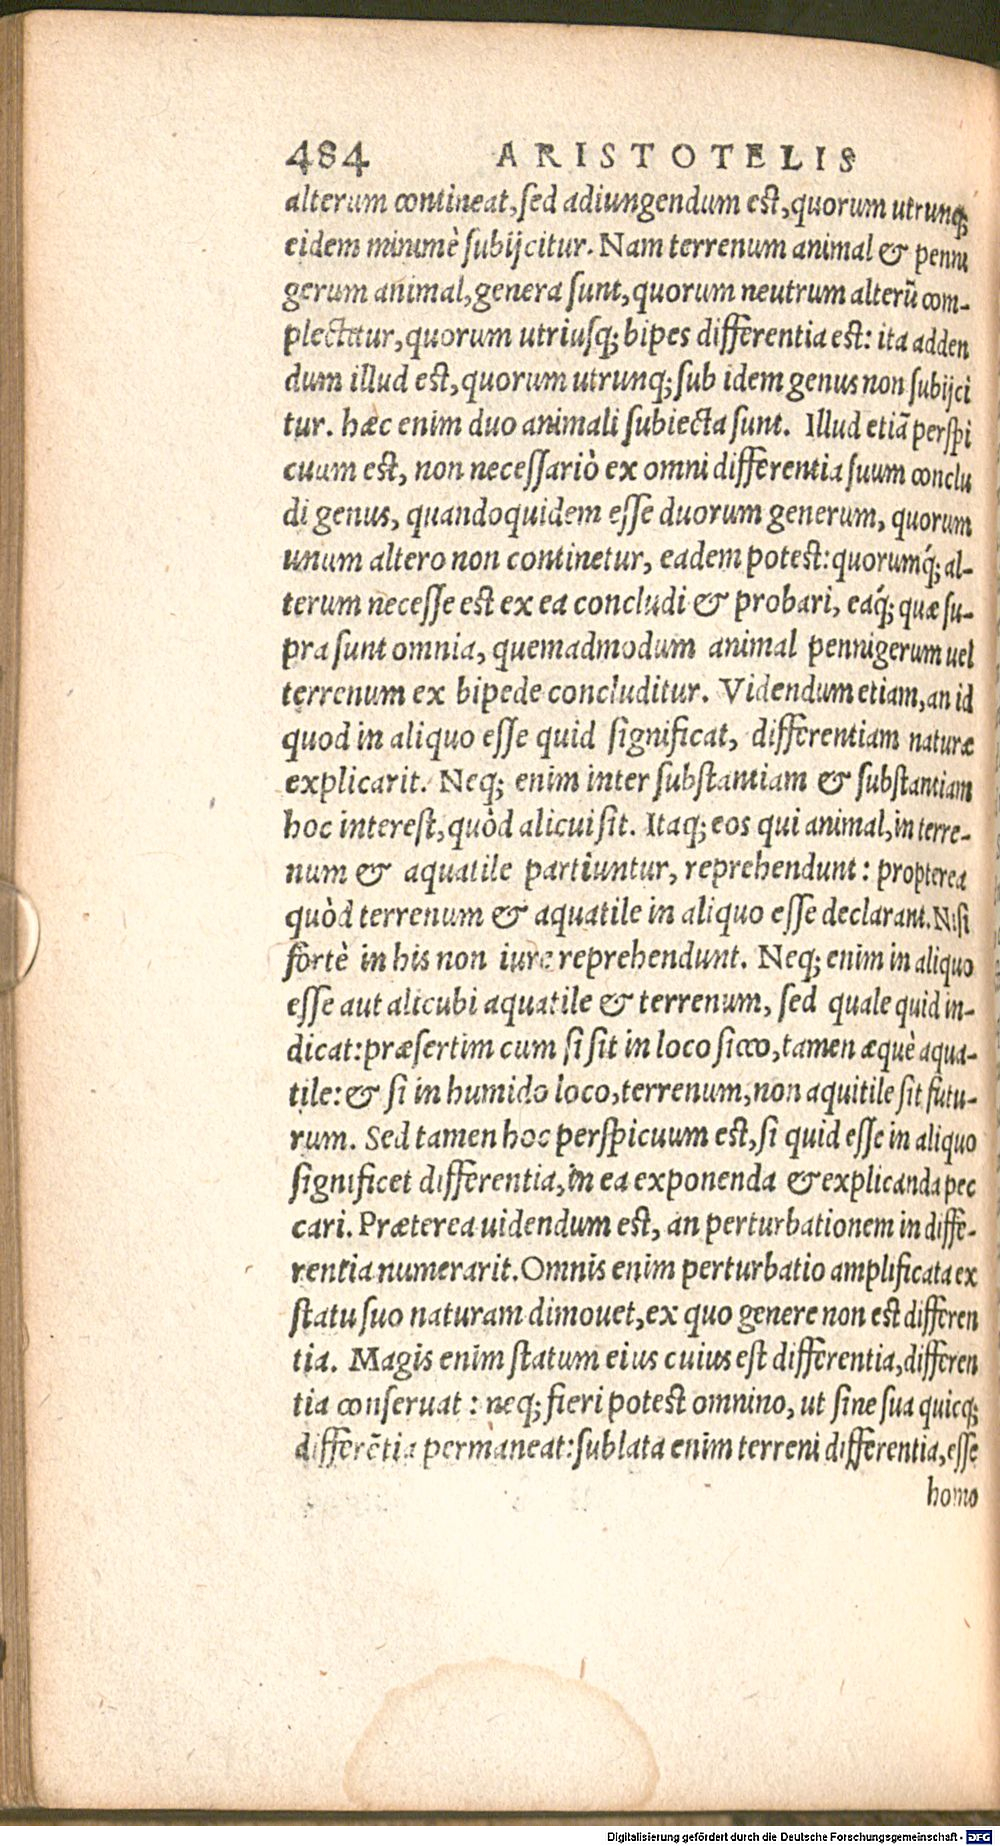 484 ARISTOTELIS
alterum contineat, sed adiungendum est, quorum utrunq;
eidem minimè subijcitur. Nam terrenum animal & penni
gerum animal, genera sunt, quorum neutrum alterū com-
plectatur, quorum utriusq; bipes differentia est: ita adden
dum illud est, quorum utrunq; sub idem genus non subijci
tur. hæc enim duo animali subiecta sunt. Illud etiā perspi
cuum est, non necessariò ex omni differentia suum conclu
di genus, quandoquidem esse duorum generum, quorum
unum altero non continetur, eadem potest: quorumq́; al-
terum necesse est ex ea concludi & probari, eaq́; quæ su-
pra sunt omnia, quemadmodum animal pennigerum uel
terrenum ex bipede concluditur. Videndum etiam, an id
quod in aliquo esse quid significat, differentiam naturæ
explicarit. Neq; enim inter substantiam & substantiam
hoc interest, quòd alicui sit. Itaq; eos qui animal, in terre-
num & aquatile partiuntur, reprehendunt: propterea
quòd terrenum & aquatile in aliquo esse declarant. Nisi
fortè in his non iure reprehendunt. Neq; enim in aliquo
esse aut alicubi aquatile & terrenum, sed quale quid in-
dicat: præsertim cum si sit in loco sicco, tamen æquè aqua-
tile: & si in humido loco, terrenum, non aquitile sit futu-
rum. Sed tamen hoc perspicuum est, si quid esse in aliquo
significet differentia, in ea exponenda & explicanda pec
cari. Præterea uidendum est, an perturbationem in diffe-
rentia numerarit. Omnis enim perturbatio amplificata ex
statu suo naturam dimouet, ex quo genere non est differen
tia. Magis enim statum eius cuius est differentia, differen
tia conseruat: neq; fieri potest omnino, ut sine sua quicq;
differētia permaneat: sublata enim terreni differentia, esse
homo
Digitalisierung gefördert durch die Deutsche Forschungsgemeinschaft - DFG